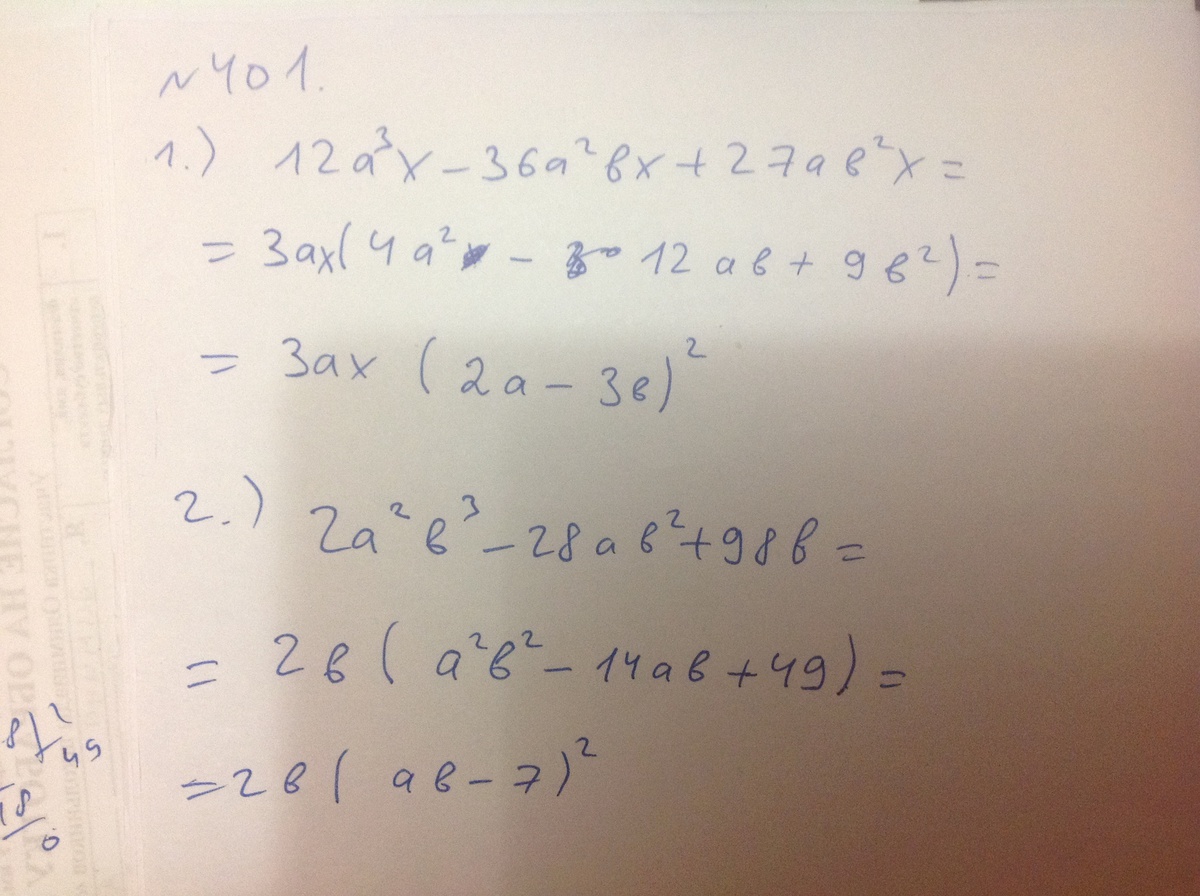 №401.
1.) 12a³x - 36a²вx + 27aв²x =
= 3ax(4a² - 12aв + 9в²) =
= 3ax (2a - 3в)²
2.) 2a²в³ - 28aв² + 98в =
= 2в(a²в² - 14aв + 49) =
= 2в(aв - 7)²